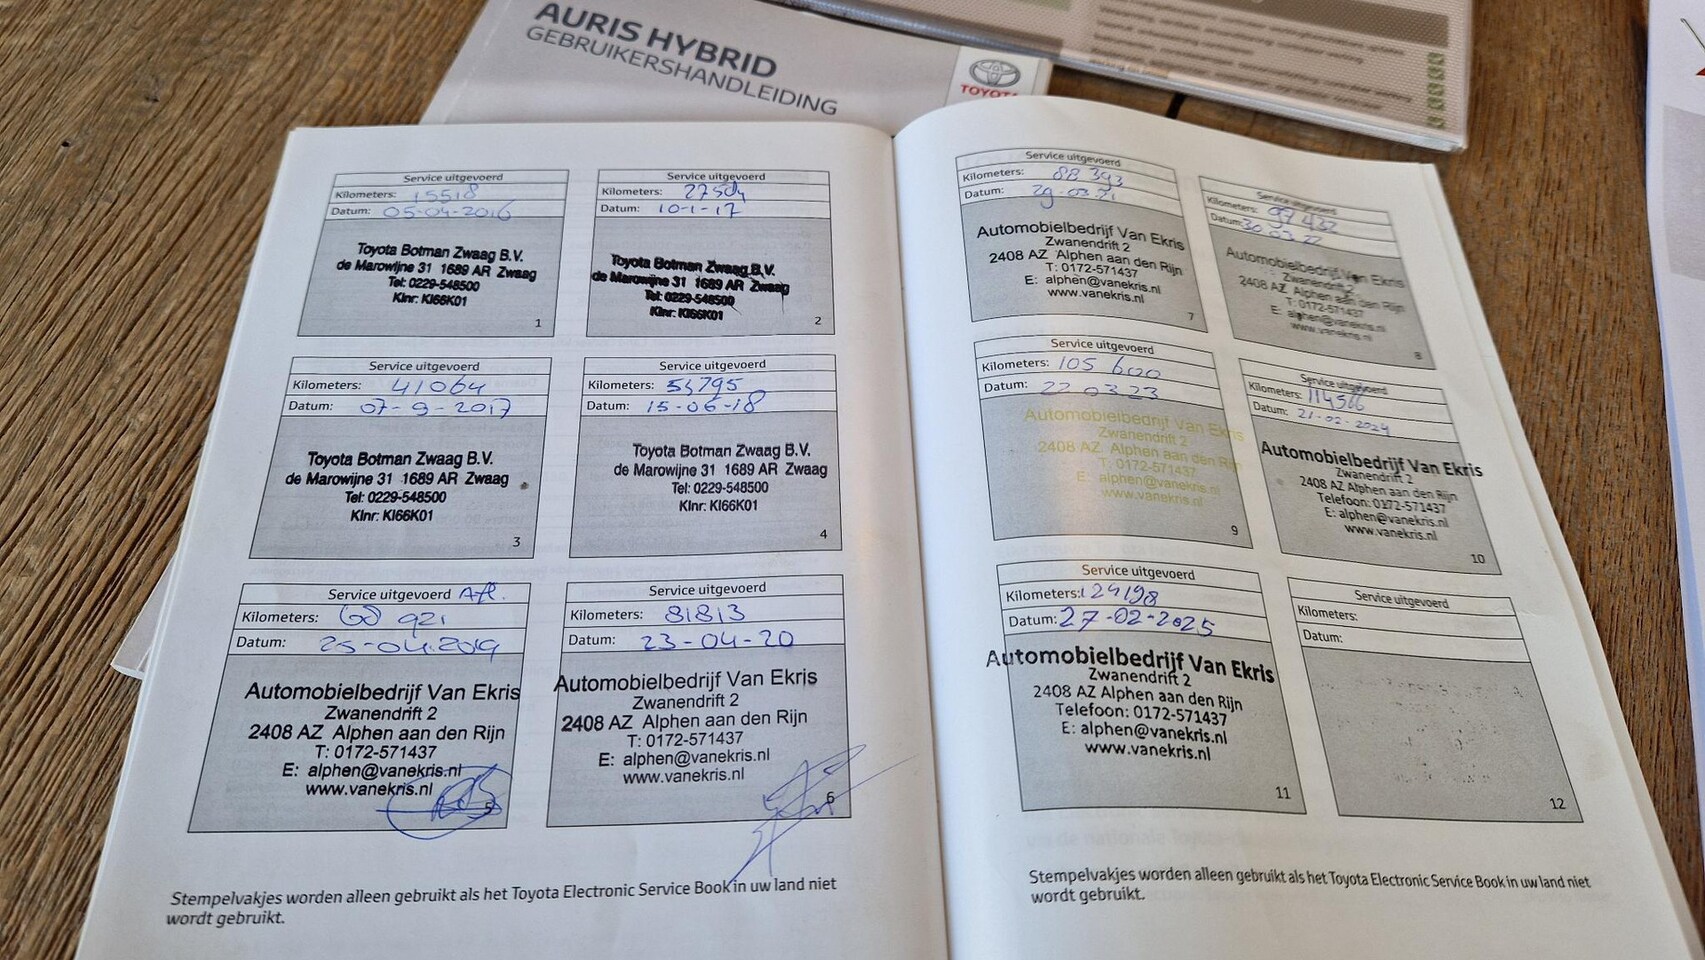 AURIS HYBRID
GEBRUIKERSHANDLEIDING
TOYOTA
Service uitgevoerd
Kilometers: 15518
Datum: 05-04-2016
Toyota Botman Zwaag B.V.
de Marowijne 31 1689 AR Zwaag
Tel: 0229-548500
Klnr: KI66K01
1
Service uitgevoerd
Kilometers: 27504
Datum: 10-1-17
Toyota Botman Zwaag B.V.
de Marowijne 31 1689 AR Zwaag
Tel: 0229-548500
Klnr: KI66K01
2
Service uitgevoerd
Kilometers: 41064
Datum: 07-9-2017
Toyota Botman Zwaag B.V.
de Marowijne 31 1689 AR Zwaag
Tel: 0229-548500
Klnr: KI66K01
3
Service uitgevoerd
Kilometers: 53795
Datum: 15-06-18
Toyota Botman Zwaag B.V.
de Marowijne 31 1689 AR Zwaag
Tel: 0229-548500
Klnr: KI66K01
4
Service uitgevoerd Afl.
Kilometers: 60 921
Datum: 25-04-2019
Automobielbedrijf Van Ekris
Zwanendrift 2
2408 AZ Alphen aan den Rijn
T: 0172-571437
E: alphen@vanekris.nl
www.vanekris.nl
5
Service uitgevoerd
Kilometers: 81813
Datum: 23-04-20
Automobielbedrijf Van Ekris
Zwanendrift 2
2408 AZ Alphen aan den Rijn
T: 0172-571437
E: alphen@vanekris.nl
www.vanekris.nl
6
Stempelvakjes worden alleen gebruikt als het Toyota Electronic Service Book in uw land niet
wordt gebruikt.
Service uitgevoerd
Kilometers: 88 393
Datum: 29-03-21
Automobielbedrijf Van Ekris
Zwanendrift 2
2408 AZ Alphen aan den Rijn
T: 0172-571437
E: alphen@vanekris.nl
www.vanekris.nl
7
Service uitgevoerd
Kilometers: 97 432
Datum: 30-03-22
Automobielbedrijf Van Ekris
Zwanendrift 2
2408 AZ Alphen aan den Rijn
T: 0172-571437
E: alphen@vanekris.nl
www.vanekris.nl
8
Service uitgevoerd
Kilometers: 105 600
Datum: 22 03 23
Automobielbedrijf Van Ekris
Zwanendrift 2
2408 AZ Alphen aan den Rijn
T: 0172-571437
E: alphen@vanekris.nl
www.vanekris.nl
9
Service uitgevoerd
Kilometers: 114566
Datum: 21-02-2024
Automobielbedrijf Van Ekris
Zwanendrift 2
2408 AZ Alphen aan den Rijn
Telefoon: 0172-571437
E: alphen@vanekris.nl
www.vanekris.nl
10
Service uitgevoerd
Kilometers: 124198
Datum: 27-02-2025
Automobielbedrijf Van Ekris
Zwanendrift 2
2408 AZ Alphen aan den Rijn
Telefoon: 0172-571437
E: alphen@vanekris.nl
www.vanekris.nl
11
Service uitgevoerd
Kilometers:
Datum:
12
Stempelvakjes worden alleen gebruikt als het Toyota Electronic Service Book in uw land niet
wordt gebruikt.